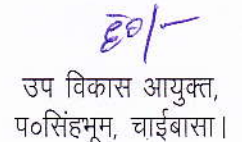 ह०/-
उप विकास आयुक्त,
प०सिंहभूम, चाईबासा।